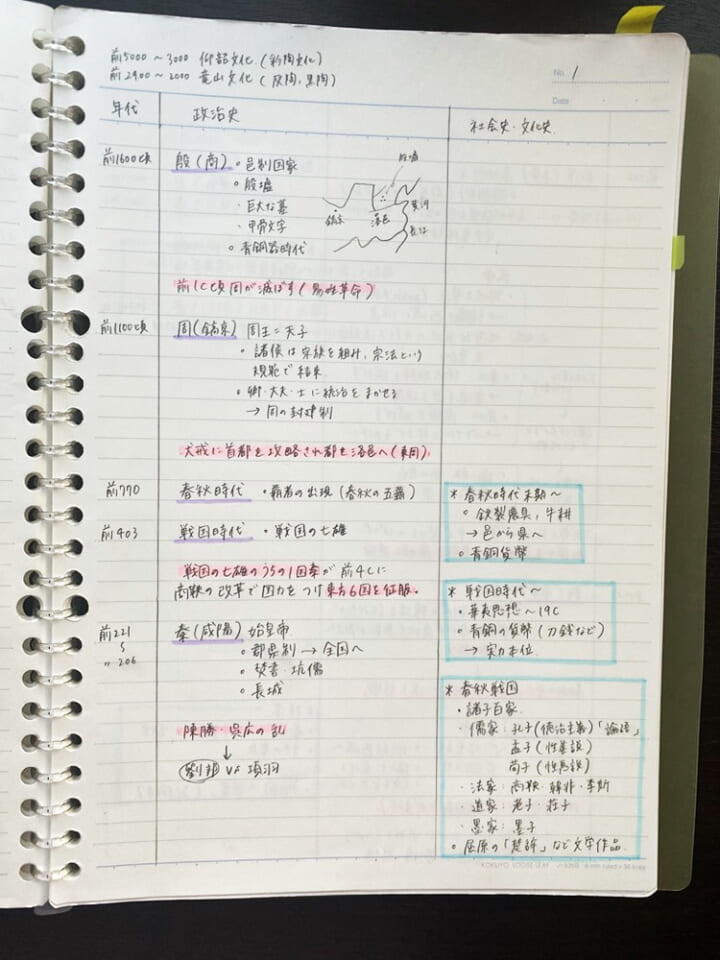 前5000～3000 仰韶文化（彩陶文化）
前2900～2000 竜山文化（灰陶，黒陶）
No. 1
Date
年代
政治史
社会史・文化史
前1600C頃
殷（商）
・邑制国家
・殷墟
・巨大な墓
・甲骨文字
・青銅器時代
殷墟
鎬京
洛邑
黄河
長江
前11C頃周が滅ぼす（易姓革命）
前1100C頃
周（鎬京） 周王＝天子
・諸侯は宗族を組み，宗法という
規範で結束
・卿・大夫・士に統治をまかせる
→ 周の封建制
犬戎に首都を攻略され都を洛邑へ（東周）
前770
春秋時代 ・覇者の出現（春秋の五覇）
前403
戦国時代 ・戦国の七雄
戦国の七雄のうちの1国秦が前4Cに
商鞅の改革で国力をつけ東方6国を征服。
前221
〃 206
秦（咸陽） 始皇帝
・郡県制 → 全国へ
・焚書・坑儒
・長城
陳勝・呉広の乱
↓
劉邦 vs 項羽
* 春秋時代末期～
・鉄製農具，牛耕
→ 邑から県へ
・青銅貨幣
* 戦国時代～
・華夷思想～19C
・青銅の貨幣（刀銭など）
→ 実力本位
* 春秋戦国
・諸子百家
・儒家：孔子（徳治主義）「論語」
孟子（性善説）
荀子（性悪説）
・法家：商鞅・韓非・李斯
・道家：老子・荘子
・墨家：墨子
・屈原の「楚辞」など文学作品
KOKUYO LOOSE-LEAF